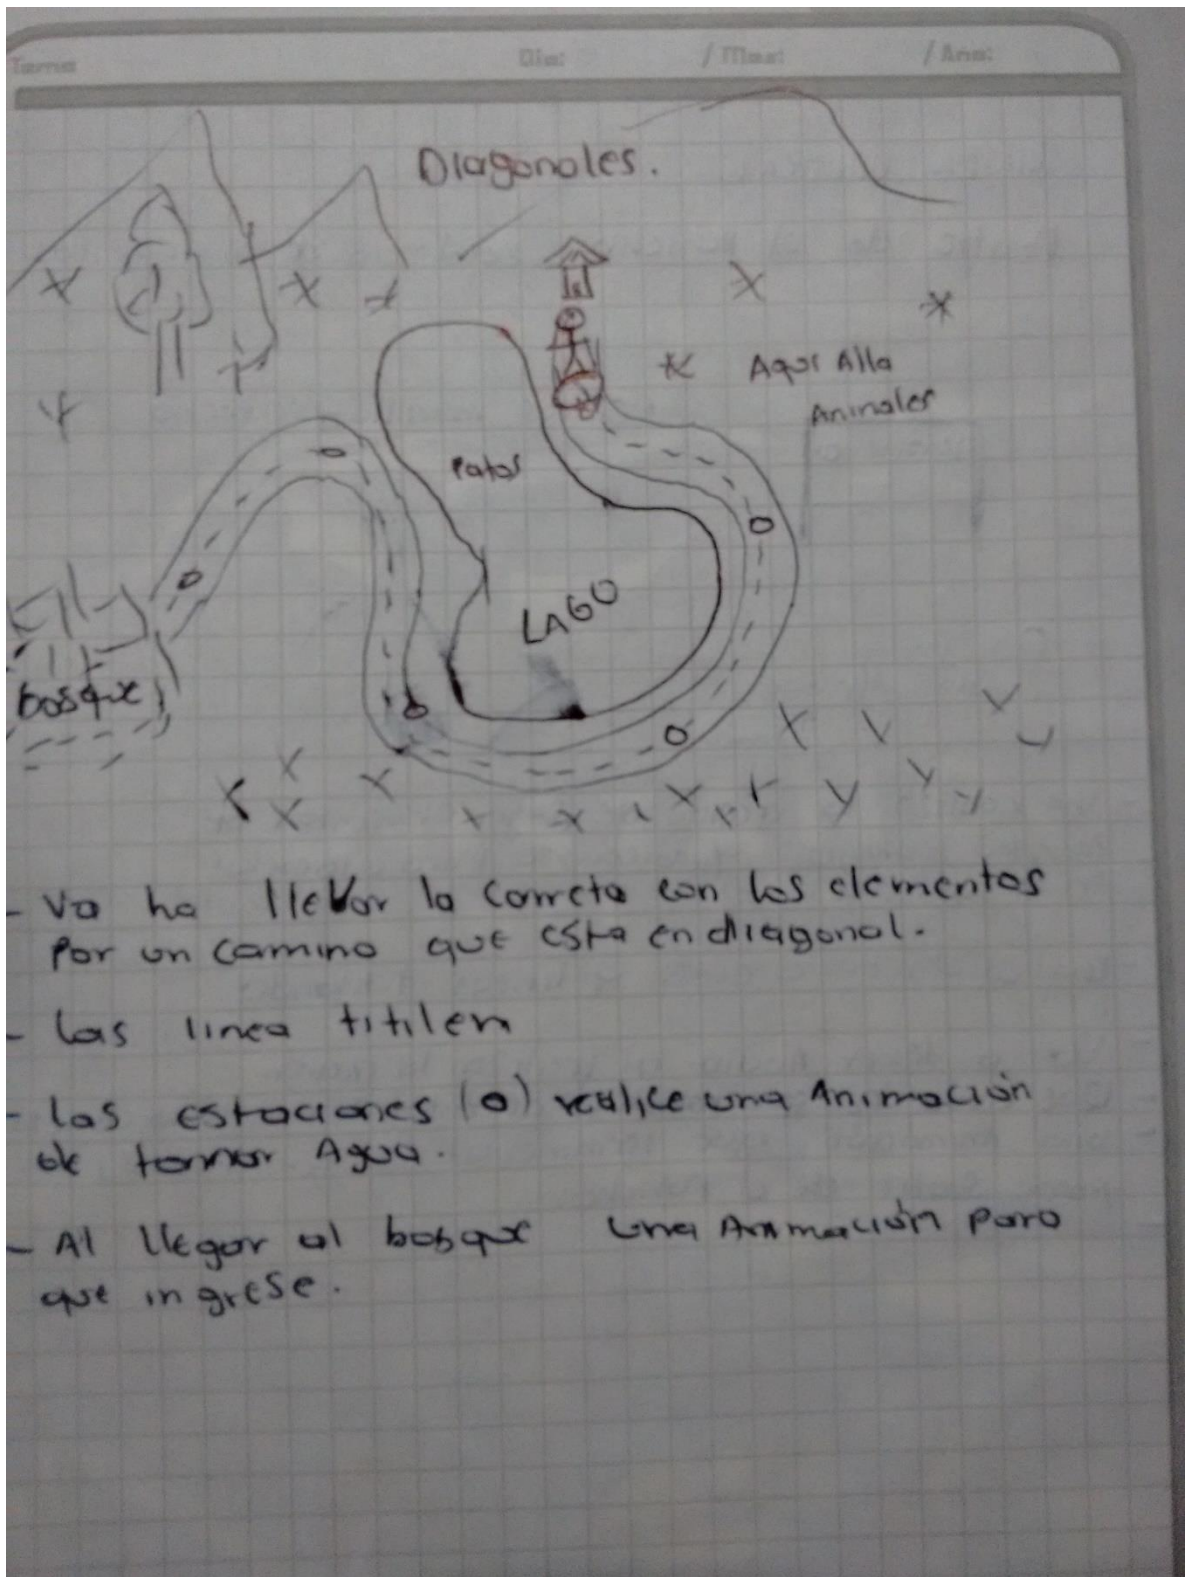 Tema Dia: / Mes: / Ano:
Diagonales.
Aqui Alla
Animales
Patos
LAGO
bosque
- Va ha llevar la carreta con los elementos
por un camino que esta en diagonal.
- Las linea titilen
- Las estaciones (o) realice una Animación
de tomar Agua.
- Al llegar al bosque una Animación para
que ingrese.